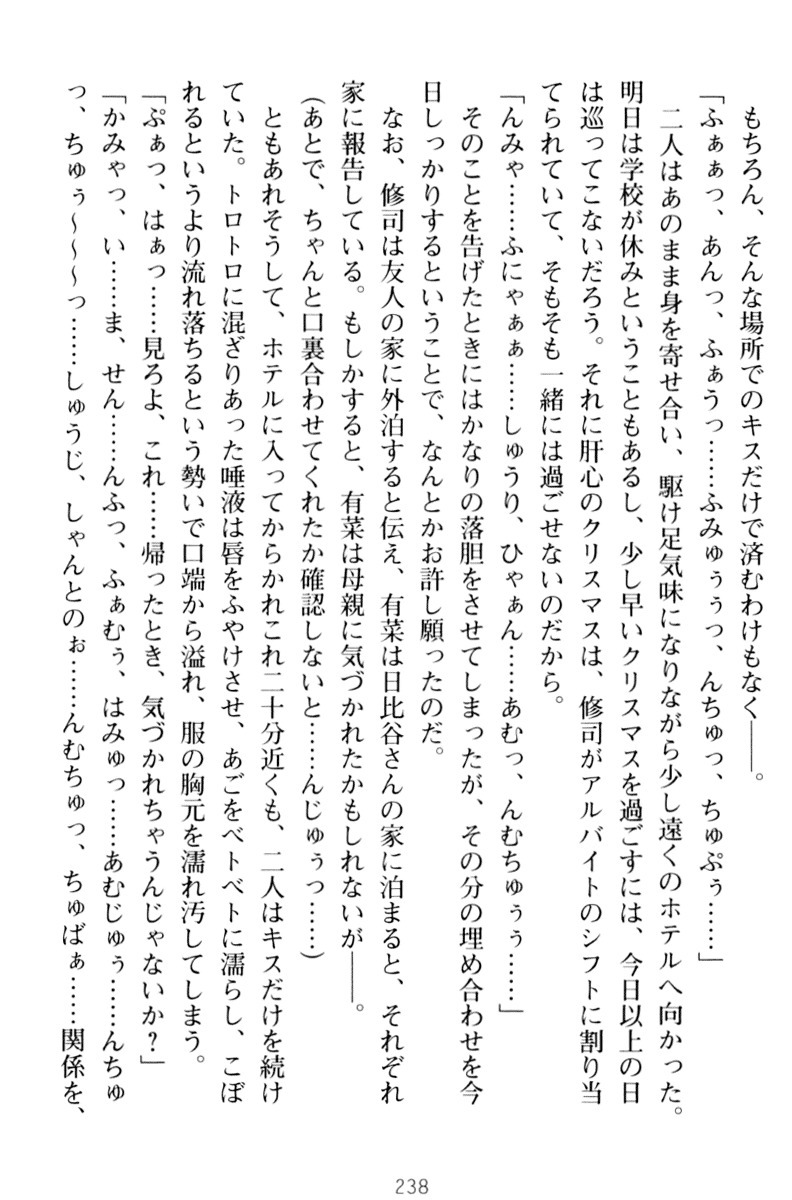 もちろん、そんな場所でのキスだけで済むわけもなく――。
「ふぁぁっ、あんっ、ふぁうっ……ふみゅぅぅっ、んちゅっ、ちゅぷぅ……」
二人はあのまま身を寄せ合い、駆け足気味になりながら少し遠くのホテルへ向かった。
明日は学校が休みということもあるし、少し早いクリスマスを過ごすには、今日以上の日
は巡ってこないだろう。それに肝心のクリスマスは、修司がアルバイトのシフトに割り当
てられていて、そもそも一緒には過ごせないのだから。
「んみゃ……ふにゃぁぁ……しゅうり、ひゃぁん……あむっ、んむちゅぅぅ……」
そのことを告げたときにはかなりの落胆をさせてしまったが、その分の埋め合わせを今
日しっかりするということで、なんとかお許し願ったのだ。
なお、修司は友人の家に外泊すると伝え、有菜は日比谷さんの家に泊まると、それぞれ
家に報告している。もしかすると、有菜は母親に気づかれたかもしれないが――。
(あとで、ちゃんと口裏合わせてくれたか確認しないと……んじゅぅっ……)
ともあれそうして、ホテルに入ってからかれこれ二十分近くも、二人はキスだけを続け
ていた。トロトロに混ざりあった唾液は唇をふやけさせ、あごをベトベトに濡らし、こぼ
れるというより流れ落ちるという勢いで口端から溢れ、服の胸元を濡れ汚してしまう。
「ぷぁっ、はぁっ……見ろよ、これ……帰ったとき、気づかれちゃうんじゃないか？」
「かみゃっ、い……ま、せん……んふっ、ふぁむぅ、はみゅっ……あむじゅぅ……んちゅ
っ、ちゅぅ～～～っ……しゅうじ、しゃんとのぉ……んむちゅっ、ちゅばぁ……関係を、
238